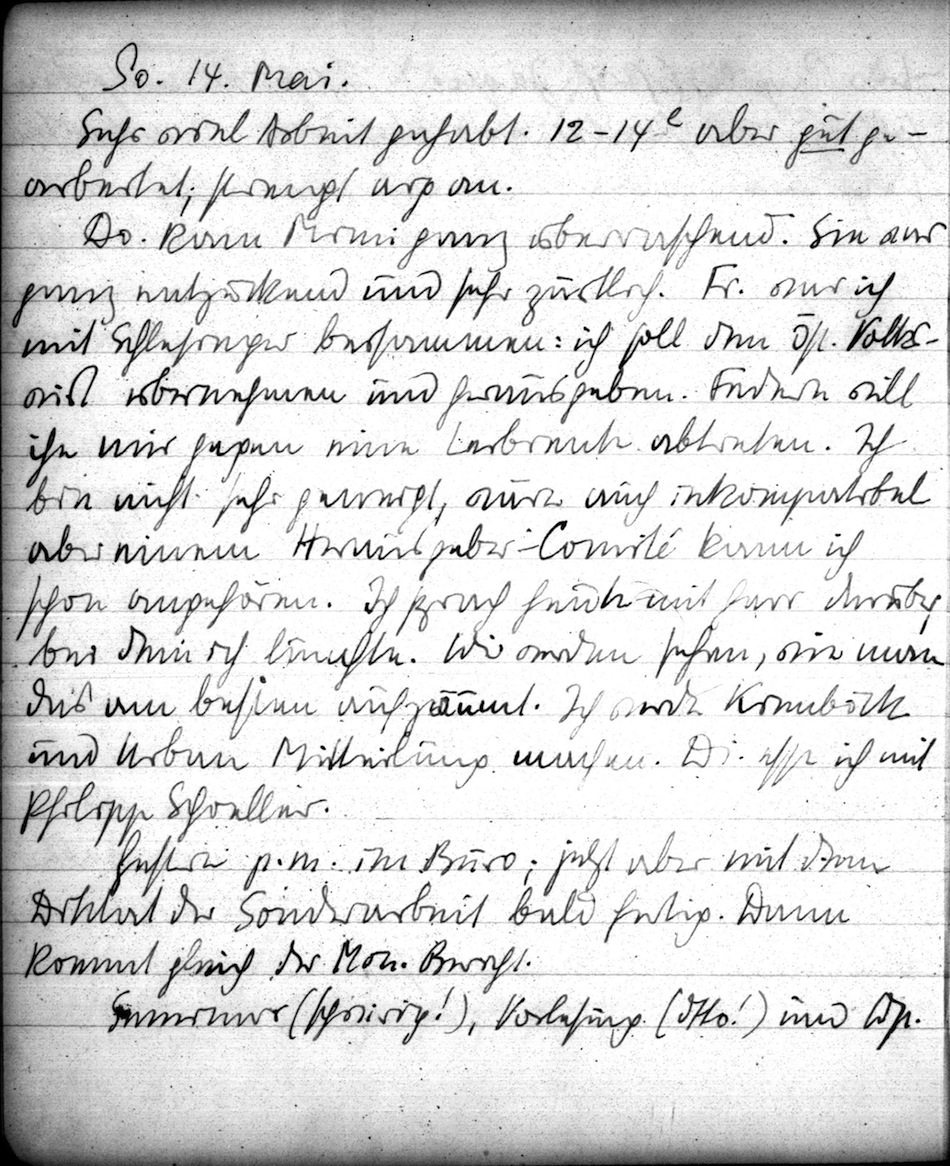 So. 14. Mai.
Sehr viel Arbeit gehabt. 12-14ʰ aber gut ge-
arbeitet; strengt arg an.
Do. kam Mimi ganz überraschend. Sie war
ganz entzückend und sehr zärtlich. Fr. war ich
mit Schlesinger beisammen: ich soll den Öst. Volks-
wirt übernehmen und herausgeben. Federn will
ihn mir gegen eine Leibrente abtreten. Ich
bin nicht sehr geneigt, wäre auch inkompatibel
aber einem Herausgeber-Comité kann ich
schon angehören. Ich sprach heute mit darüber,
bei dem ich. Wir werden sehen, wie man
das am besten aufzäumt. Ich werde
und Urban Mitteilung machen. Di. esse ich mit
Philipp Schoeller.
Gestern p.m. im Büro; jetzt aber mit dem
Diktat der Sonderarbeit bald fertig. Dann
kommt gleich der Mon. Bericht.
Seminar (schwierig!), Vorlesung (dtto!) und